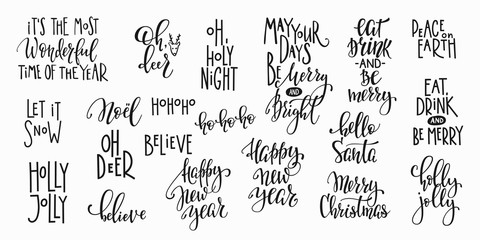 IT'S THE MOST
Wonderful
TIME OF THE YEAR
Oh,
deer
OH,
HOLY
NIGHT
MAY YOUR
DAYS
BE Merry
AND
Bright
eat
drink
-AND-
be
merry
PEACE on
EARTH
LET IT
SNOW
Noël
HOHOHO
ho-ho-ho
EAT,
DRINK
AND
BE MERRY
OH
DEER
BELIEVE
hello
Santa
HOLLY
JOLLY
believe
Happy
new
year
Happy
new
year
Merry
Christmas
holly
jolly